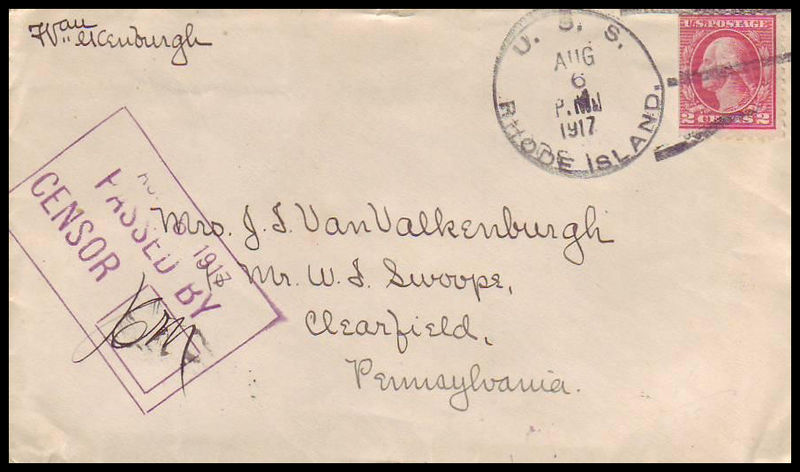 Van
Valkenburgh
U. S. S.
AUG
6
P.M
1917
RHODE ISLAND.
U.S. POSTAGE
2 CENTS 2
1917
PASSED BY
CENSOR
Mrs. J. J. VanValkenburgh
% Mr. W. I. Swoope,
Clearfield,
Pennsylvania.